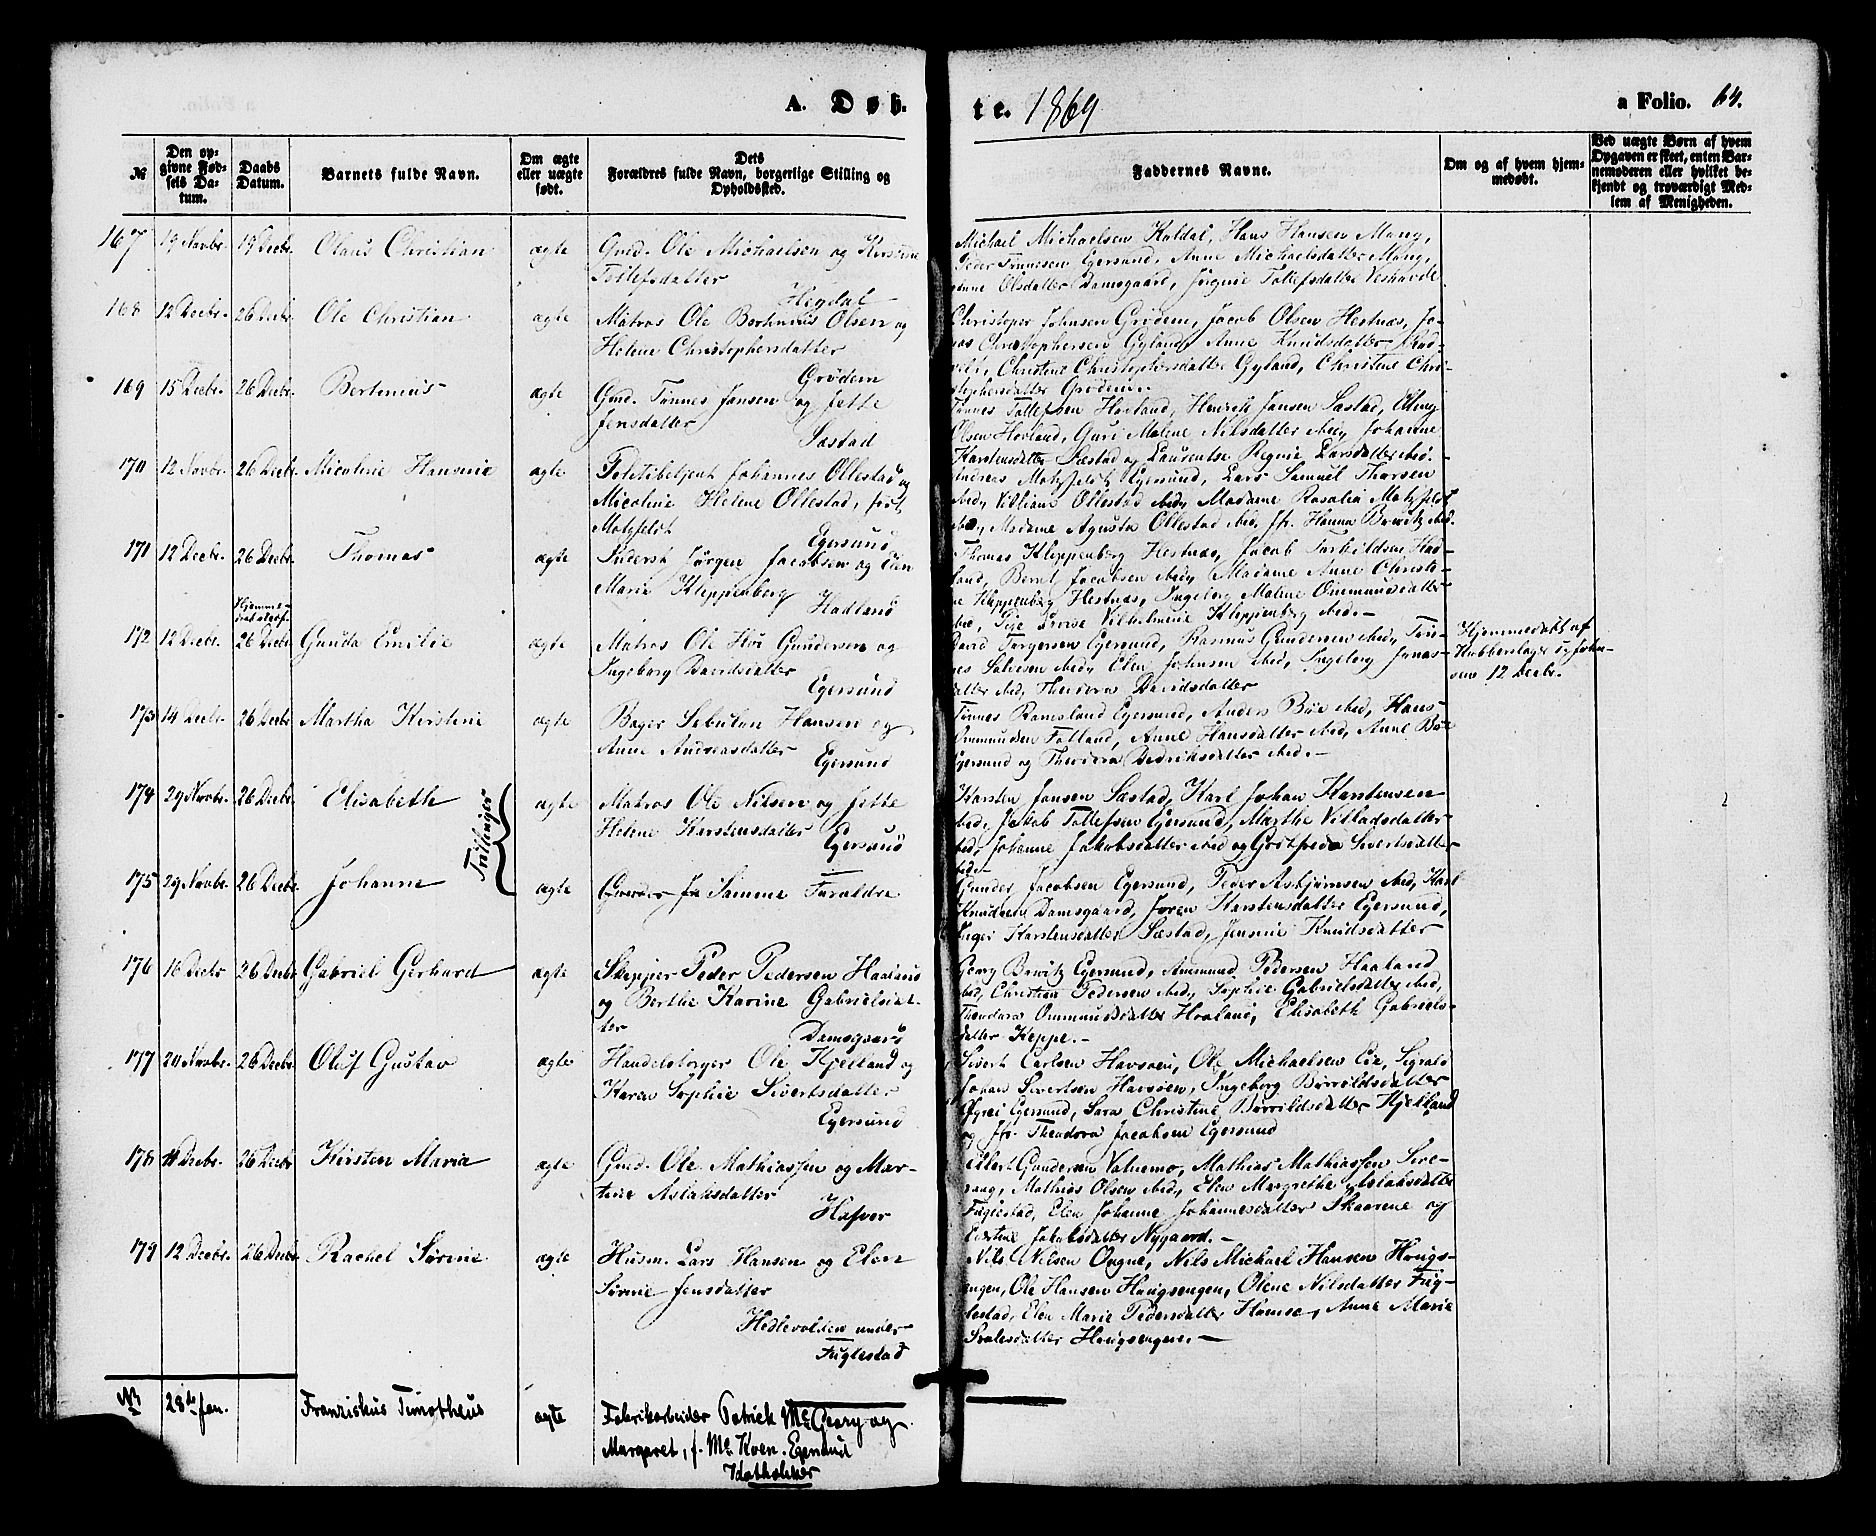 A. Døb-
te. 1869
a Folio. 64.
№
Den op-
givne Fød-
sels Da-
tum.
Daabs
Datum.
Barnets fulde Navn.
Om ægte
eller uægte
født.
Dets
Forældres fulde Navn, borgerlige Stilling og
Opholdssted.
Faddernes Navne.
Om og af hvem hjem-
medøbt.
Ved uægte Børn af hvem
Opgaven er skeet, enten Bar-
nemoderen eller hvilket be-
kjendt og troværdigt Med-
lem af Menigheden.
167 19 Novbr. 19 Decbr. Olaus Christian ægte Gmd. Ole Michaelsen og Kirstine
Tollefsdatter
Hegdal
Michael Michaelsen Kaldal, Hans Hansen Mong,
Peder Tønnesen Egersund, Anne Michaelsdatter Mong,
Anne Olsdatter Damsgaard, Jørgine Tollefsdatter
168 12 Decbr. 26 Decbr. Ole Christian ægte Matros Ole Bertinius Olsen og
Helene Christophersdatter
Grødem
Christopher Johnsen Grødem, Jacob Olsen Hestnæs, Jo-
nas Christophersen Gyland, Anne Knudsdatter
Christine Christophersdatter Gyland, Christine Chri-
stophersdatter Grødem.
169 15 Decbr. 26 Decbr. Bertinius ægte Gmd. Tønnes Jansen og Jette
Jensdatter
Sæstad
Tønnes Tollefsen Hovland, Henrik Jansen Sæstad, Elling
Olsen Hovland, Guri Malene Nilsdatter ibid, Johanne
Karstensdatter Sæstad og Laurentse Regine Larsdatter ibid.
170 12 Novbr. 26 Decbr. Micoline Hansine ægte Politibetjent Johannes Ollestad og
Micoline Helene Ollestad, født
Motzfeldt
Egersund
Andreas Motzfeldt Egersund, Lars Samuel Thorsen
ibid, Villiam Ollestad ibid, Madame Rosalia Motzfeldt
ibid, Madame Agusta Ollestad ibid, Jfr. Hanna ibid.
171 12 Decbr. 26 Decbr. Thomas ægte Inderst Jørgen Jacobsen og Elen
Marie Kleppenberg
Hadland
Thomas Kleppenberg Hestnæs, Jacob Torkildsen Had-
land, Bernt Jacobsen ibid, Madame Anne Christi-
ne Kleppenberg Hestnæs, Ingeborg Malene Ommundsdatter
ibid, Pige Lovise Vilhelmine Kleppenberg ibid.
172 12 Decbr. 26 Decbr. Gunda Emilie ægte Matros Ole Høi Gundersen og
Ingeborg Davidsdatter
Egersund
David Torgersen Egersund, Rasmus Gundersen ibid, Tøn-
nes Salvesen ibid, Elen Johnsen ibid, Ingeborg Jonas-
datter ibid, Theodora Davidsdatter
Hjemmedøbt af
Klubbeslager og John-
sen 12 Decbr.
173 14 Decbr. 26 Decbr. Martha Kirstine ægte Bager Sebulon Hansen og
Anne Andreasdatter
Egersund
Tønnes Ramsland Egersund, Anders Bøe ibid, Hans
Ommundsen Fotland, Anne Hansdatter ibid, Anne Bøe
Egersund og Theodora Bedriksdatter ibid.
174 29 Novbr. 26 Decbr. Elisabeth ægte Matros Ole Nilsen og Jette
Helene Karstensdatter
Egersund
Tvillinger
Karsten Jansen Sæstad, Karl Johan Karstensen
ibid, Jakob Tollefsen Egersund, Marthe Villadsdatter
ibid, Johanne Jakobsdatter ibid og Gotfreda Sivertsdatter
ibid.
175 29 Novbr. 26 Decbr. Johanne ægte Samme Forældre
Gunder Jacobsen Egersund, Peder Asbjørnsen ibid, Karl
Knudsen Damsgaard, Joren Karstensdatter Egersund,
Inger Karstensdatter Sæstad, Jensine Knudsdatter
176 16 Decbr. 26 Decbr. Gabriel Gerhard ægte Skipper Peder Pedersen Haaland
og Berthe Karine Gabrielsdat-
ter
Damsgaard
Georg Egersund, Ammund Pedersen Haaland
ibid, Christian Pedersen ibid, Sophie Gabrielsdatter ibid,
Theodora Ommundsdatter Hovland, Elisabeth Gabriels-
datter Keppe.
177 20 Novbr. 26 Decbr. Oluf Gustav ægte Handelsborger Ole Kjelland og
Karen Sophie Sivertsdatter
Egersund
Sivert Carlsen Havsøen, Ole Michaelsen Eie,
Johan Sivertsen Havsøen, Ingeborg
Egersund, Sara Christine Kjelland
og Jfr. Theodora Jacobsen Egersund
178 11 Decbr. 26 Decbr. Kirsten Maria ægte Gmd. Ole Mathiassen og Mar-
tine Aslaksdatter
Hafsøe
Ellert Gundersen Vatnemo, Mathias Mathiassen Sire-
vaag, Mathias Olsen ibid, Elen Margrethe Aslaksdatter
Fuglestad, Elen Johanne Johannesdatter Skaarene og
Jakobsdatter Nygaard.
179 12 Decbr. 26 Decbr. Rachel Sørine ægte Husm. Lars Hansen og Elen
Sørine Jensdatter
Hedlevolden under
Fuglestad
Nils Nilsen Ongne, Nils Michael Hansen Hougs-
engen, Ole Hansen Hougsengen, Olene Nilsdatter Fug-
lestad, Elen Marie Pedersdatter Anne Marie
Hougsengen.
№ 28de Jan. Franziskus Timotheus ægte Fabrikarbeider Patrick Mc Geary og
Margaret, f. Mc Koen. Egersund
Katholikker